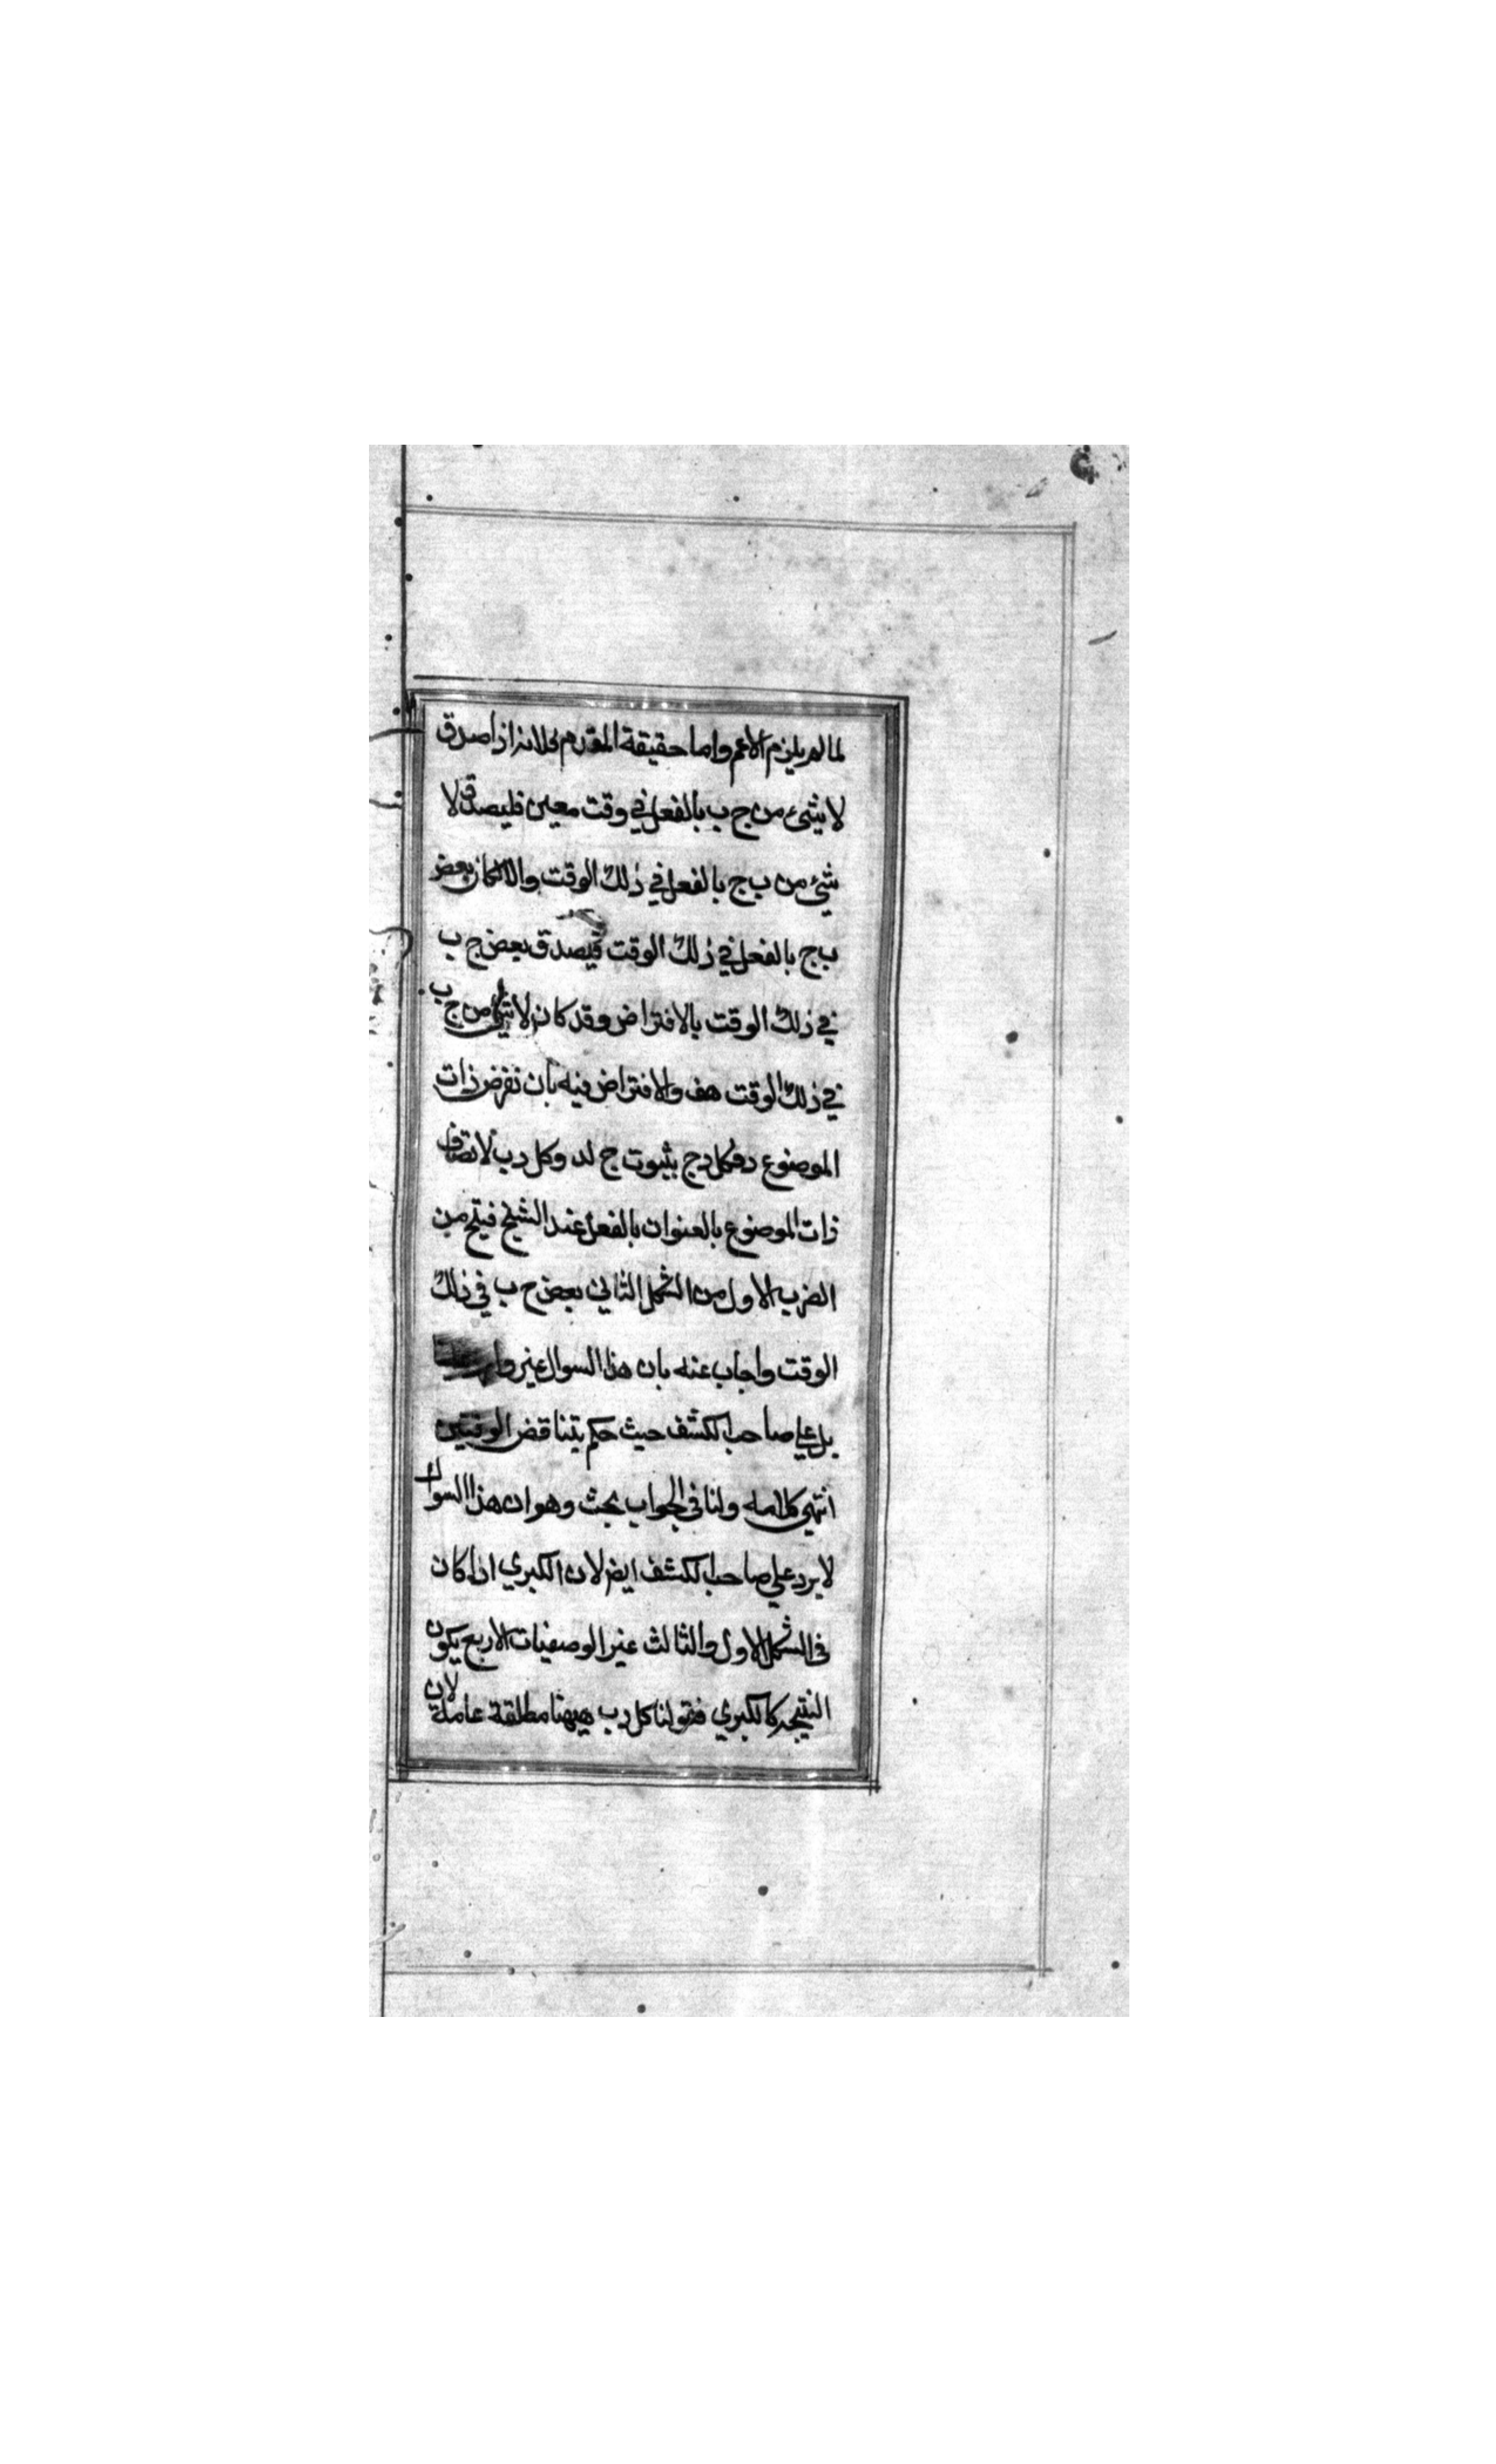 لما لم يلزم الاعم واما حقيقة المقدم فلانه اذا صدق
لا شئ من ج ب بالفعل في وقت معين فليصدق لا
شئ من ب ج بالفعل في ذلك الوقت والا لكان بعض
ب ج بالفعل في ذلك الوقت فيصدق بعض ج ب
في ذلك الوقت بالافتراض وقد كان لا شئ من ج ب
في ذلك الوقت هف والافتراض فيه بان نفرض ذات
الموضوع د فكل د ج بثبوت ج له وكل د ب لاتصاف
ذات الموضوع بالعنوان بالفعل عند الشيخ فينتج من
الضرب الاول من الشكل الثالث بعض ج ب في ذلك
الوقت واجاب عنه بان هذا السوال غير وارد
بل علي صاحب الكشف حيث حكم بتناقض الوقتيتين
انتهي كلامه ولنا في الجواب بحث وهو ان هذا السوال
لا يرد علي صاحب الكشف ايضر لان الكبري اذا كان
في الشكل الاول والثالث غير الوصفيات الاربع يكون
النتيجه كالكبري فقولنا كل د ب ههنا مطلقة عامة لان